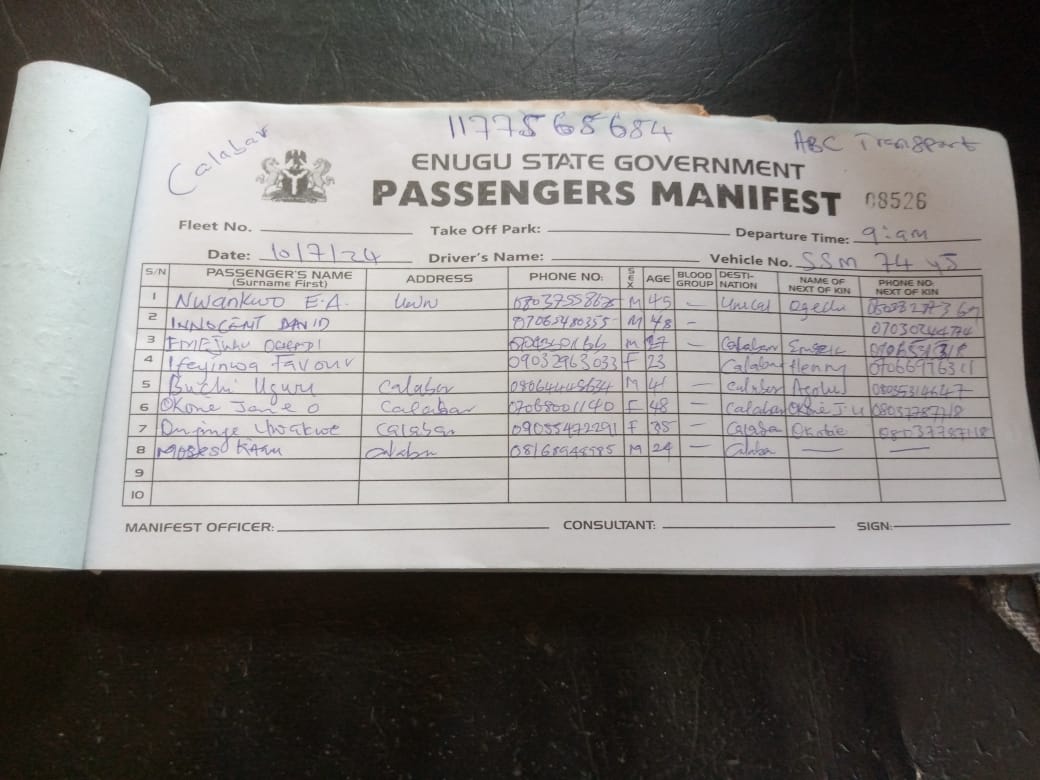 Calabar
1177565684
ABC Transport
ENUGU STATE GOVERNMENT
PASSENGERS MANIFEST 08526
Fleet No. Take Off Park: Departure Time: 9:am
Date: 10/7/24 Driver's Name: Vehicle No. SSM 74
S/N PASSENGER'S NAME (Surname First) ADDRESS PHONE NO: SEX AGE BLOOD GROUP DESTI-NATION NAME OF NEXT OF KIN PHONE NO: NEXT OF KIN
1 Nwankwo E.A. UNN 08037558675 M 45 - Unical
2 INNOCENT DAVID 07065480355 M 48 - 07030244774
3 M 27 - Calabar
4 Ifeyinwa Favour 09032963033 F 23 Calabar Henny 07066976311
5 Buchi Uguru Calabar M 41 - Calabar
6 Okone Jane O Calabar 07068001140 F 48 - Calabar Okone J.U 08037787118
7 Calabar 09055472291 F 35 - Calaba 08037787118
8 Moses Kanu Calabar 08168949985 M 24 - Calabar — —
9
10
MANIFEST OFFICER: CONSULTANT: SIGN: